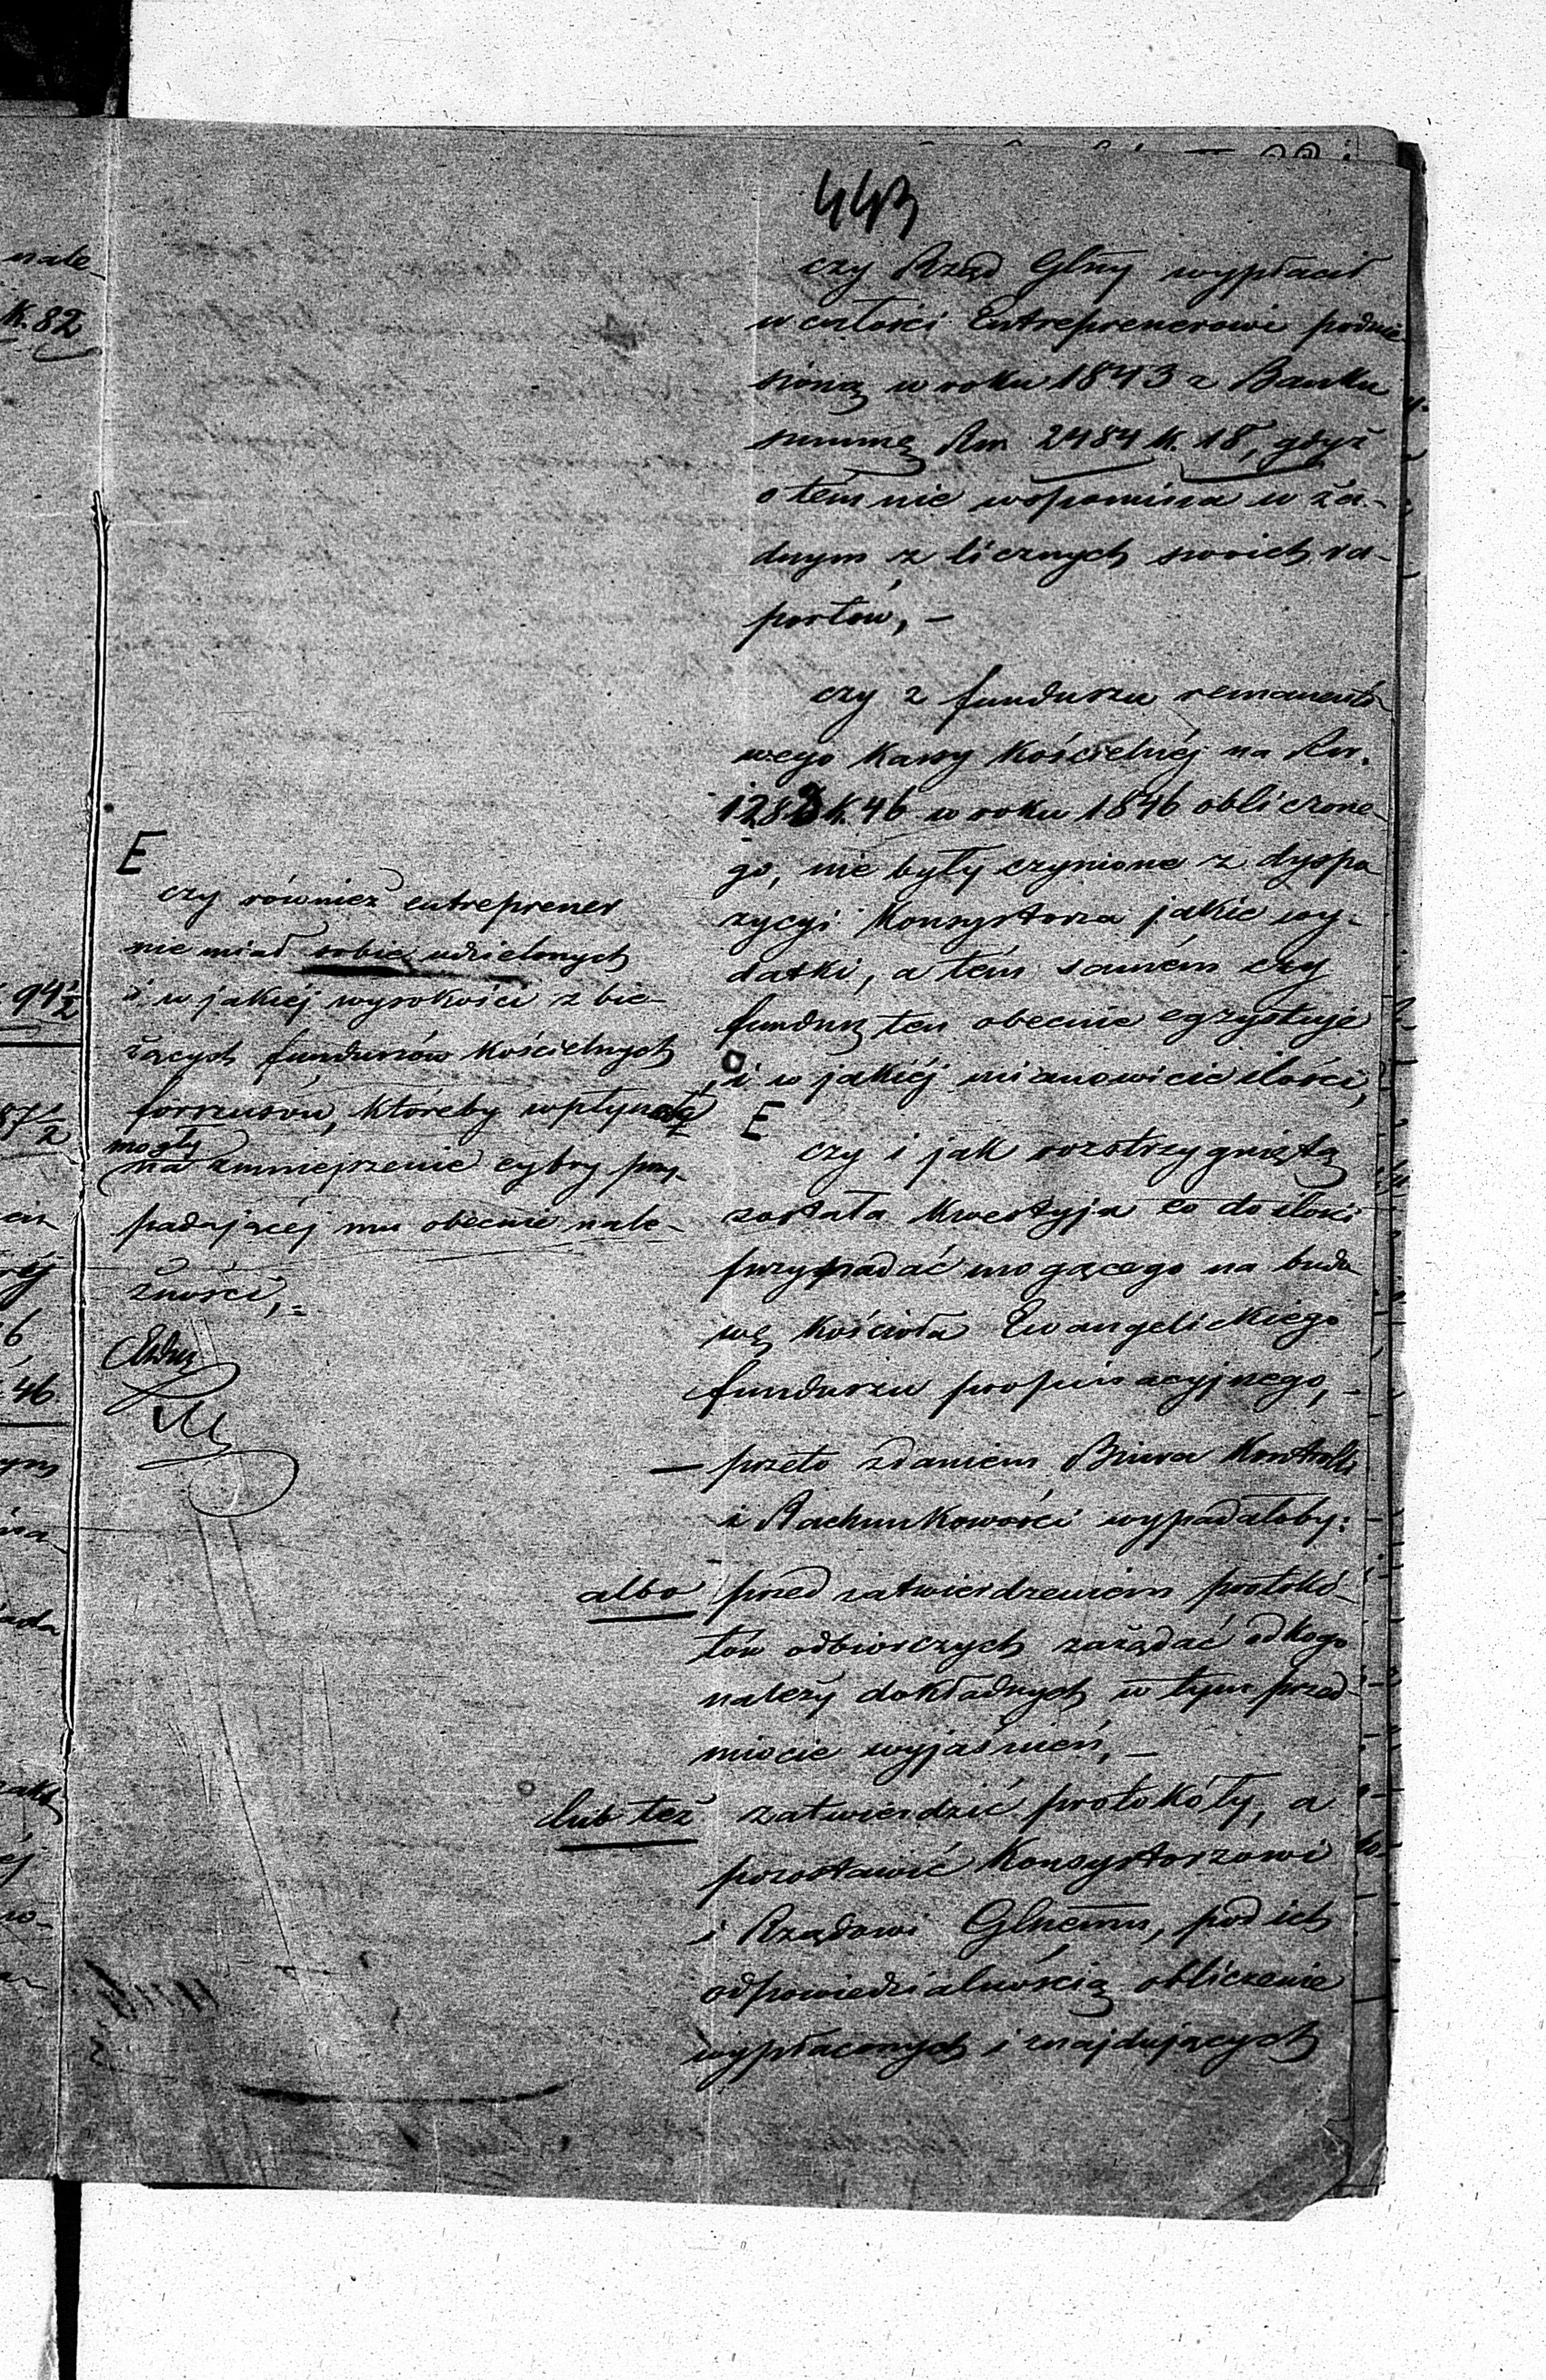 443
czy Rząd Glny wypłacił
w całości Entreprenerowi podnie
sioną w roku 1843 z Banku
summę Rsr. 2484 K. 18, gdyż
o tém nie wspomina w ża-
dnym z licznych swoich ra-
portów, –
czy z funduszu remanento-
wego kassy Kościelnéj na Rsr.
1283 K. 46 w roku 1846 obliczone-
go, nie były czynione z dyspo
zycyi Konsystorza jakie wy-
datki, a tém samém czy
fundusz ten obecnie egzystuje
i w jakiéj mianowicie ilości,
E
czy i jak rozstrzygniętą
została kwestyja co do ilości
przypadać mogącego na budo
wę kościoła Ewangelickiego
funduszu propinacyjnego, –
– przeto zdaniem Biura Kontrolli
i Rachunkowości wypadałoby:
albo przed zatwierdzeniem protokó-
łów odbiorczych zażądać od kogo
należy dokładnych w tym przed-
miocie wyjaśnień, –
lub też zatwierdzić protokóły, a
pozostawić Konsystorzowi
i Rządowi Glnemu, pod ich
odpowiedzialnością obliczenie
wypłaconych i znajdujących
E
czy również entreprener
nie miał sobie udzielonych
i w jakiéj wysokości z bie-
żących funduszów kościelnych
forszusów, któreby wpłynąć
mogły
na zmniejszenie cyfry przy-
padającéj mu obecnie nale-
żności, =
nale-
K. 82
94½
87½
46.